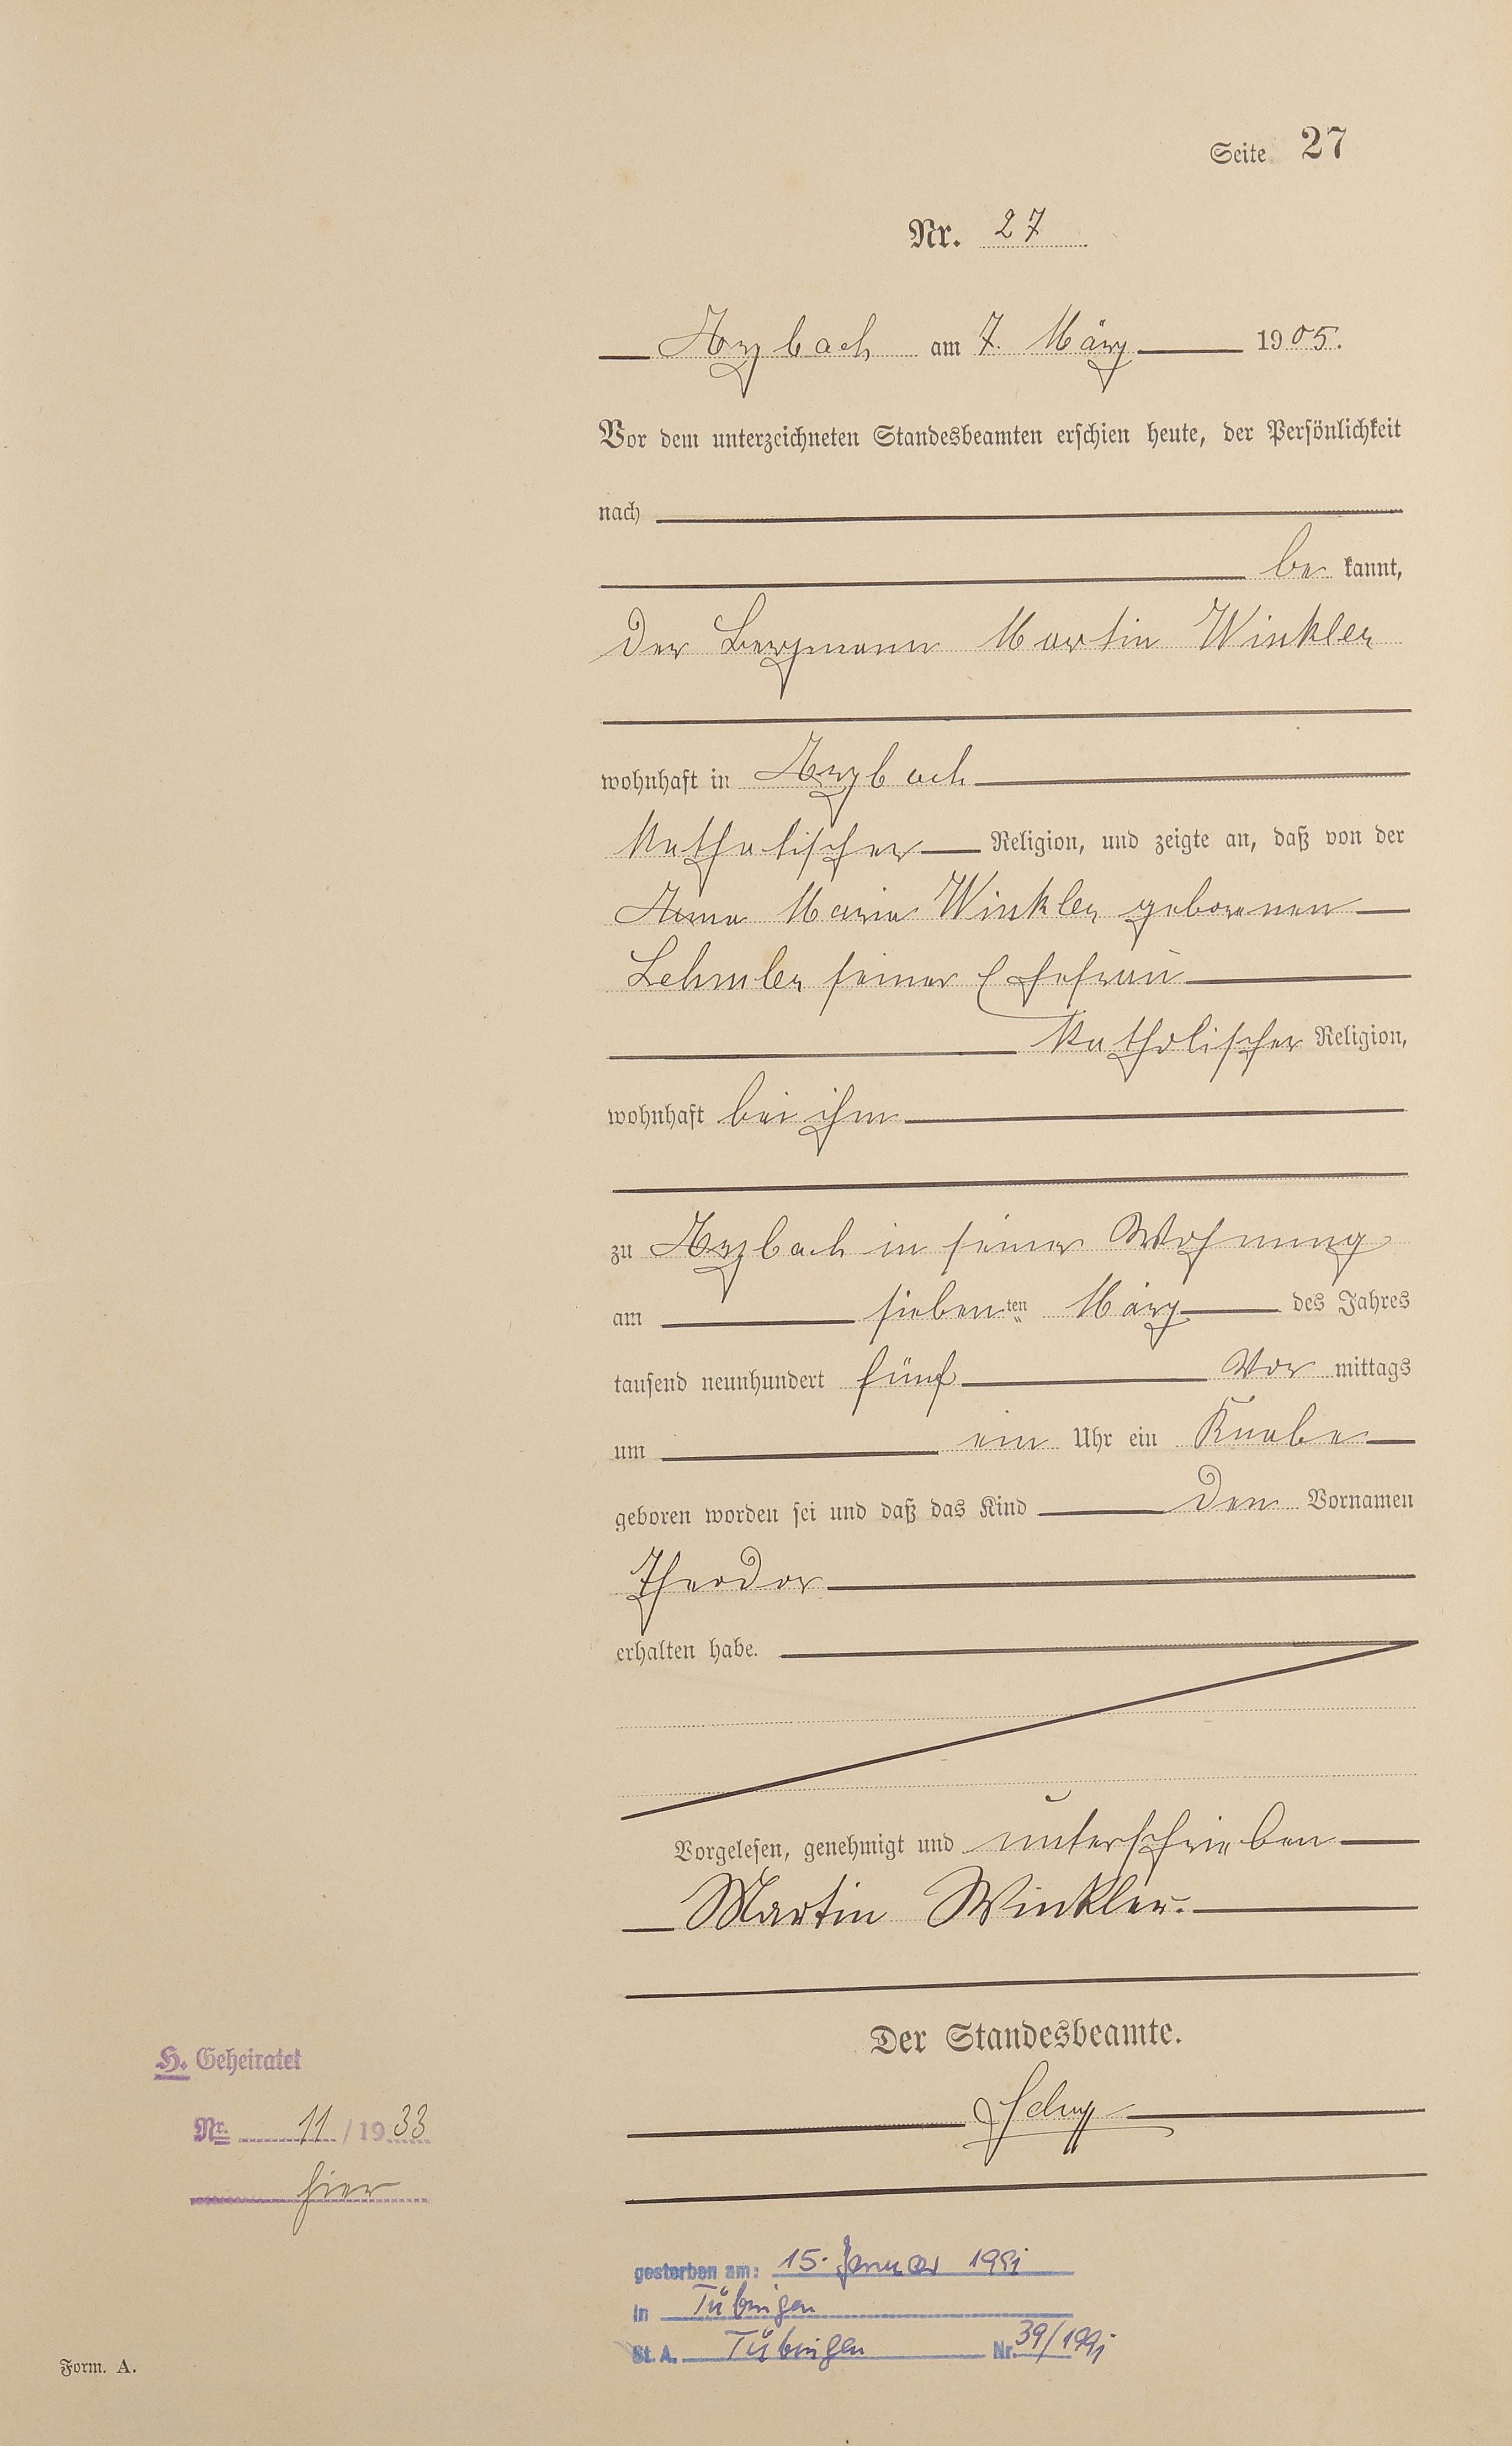 Seite 27
Nr. 27
Arzbach am 7. März 1905.
Vor dem unterzeichneten Standesbeamten erschien heute, der Persönlichkeit
nach
be kannt,
der Bergmann Martin Winkler
wohnhaft in Arzbach
katholischer Religion, und zeigte an, daß von der
Anna Maria Winkler geborenen
Lehmler seiner Ehefrau
katholischer Religion,
wohnhaft bei ihm
zu Arzbach in seiner Wohnung
am siebenten März des Jahres
tausend neunhundert fünf Vor mittags
um ein Uhr ein Knabe
geboren worden sei und daß das Kind den Vornamen
Theodor
erhalten habe.
Vorgelesen, genehmigt und unterschrieben
Martin Winkler.
Der Standesbeamte.
H. Geheiratet
Nr. 11/1933
hier
gestorben am: 15. Januar 1991
in Tübingen
St. A. Tübingen Nr. 39/1991
Form. A.